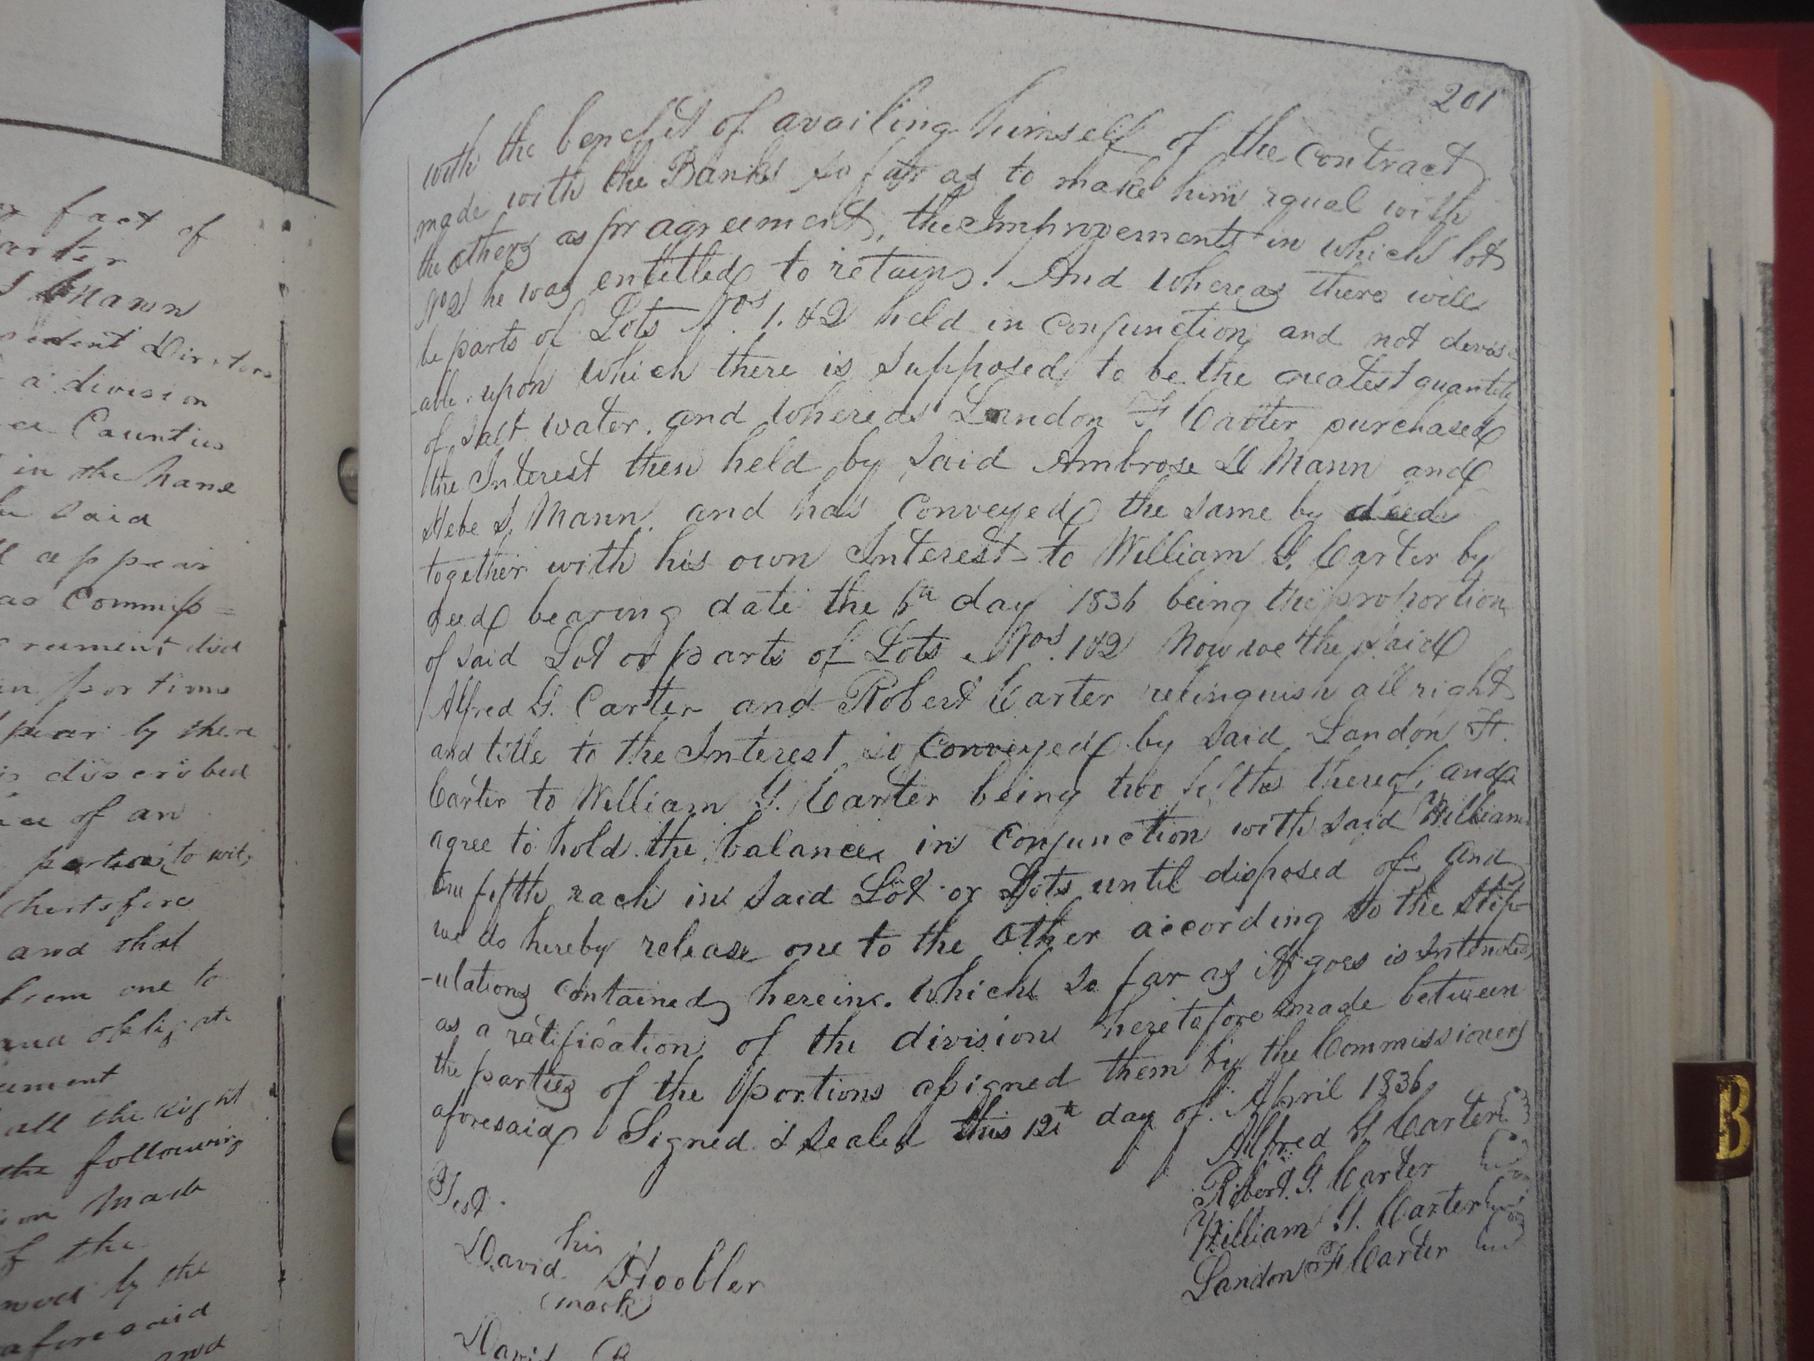 x fact of
arter
J Mann
sident Directors
a division
a Counties
in the hand
he said
ll appear
as Commiss=
rument did
in portions
ppear by there
is discribed
ce of an
portion to wit,
heretofore
and that
from one to
and obligate
ument
all the right
the following
ion made
of the
owed by the
aforesaid
and
201
with the benefit of availing himself of the Contract
made with the Banks so far as to make him equal with
the others as pr agreement, the Improvements in which lot
No2 he was entitled to retain. And Whereas there will
be parts of Lots Nos. 1. &2 held in conjunction and not devis
-able upon which there is supposed to be the greatest quantity
of salt water. and whereas Landon F Carter purchased
the Interest then held by said Ambrose D Mann and
Hebe S. Mann. and has Conveyed the same by deed
together with his own Interest to William G. Carter by
deed bearing date the 6th day 1836 being the proportion
of said Lot or parts of Lots Nos. 1&2 Now we the said
Alfred G. Carter and Robert Carter relinquish all right
and title to the Interest so Conveyed by said Landon F.
Carter to William G. Carter being two fifths thereof, and
agree to hold the balance in Conjunction with said William
One fifth each in said Lot or Lots until disposed of and
we do hereby release one to the Other according to the Stip
-ulations Contained herein. which so far as it goes is Intended
as a ratification of the division heretofore made between
the parties of the portions assigned them by the Commissioners
aforesaid Signed & Sealed this 12th day of April 1836.
Alfred G Carter
Robert. G. Carter
William G. Carter
Landon F Carter
Test.
his
David Hoobler
(mark)
David
B